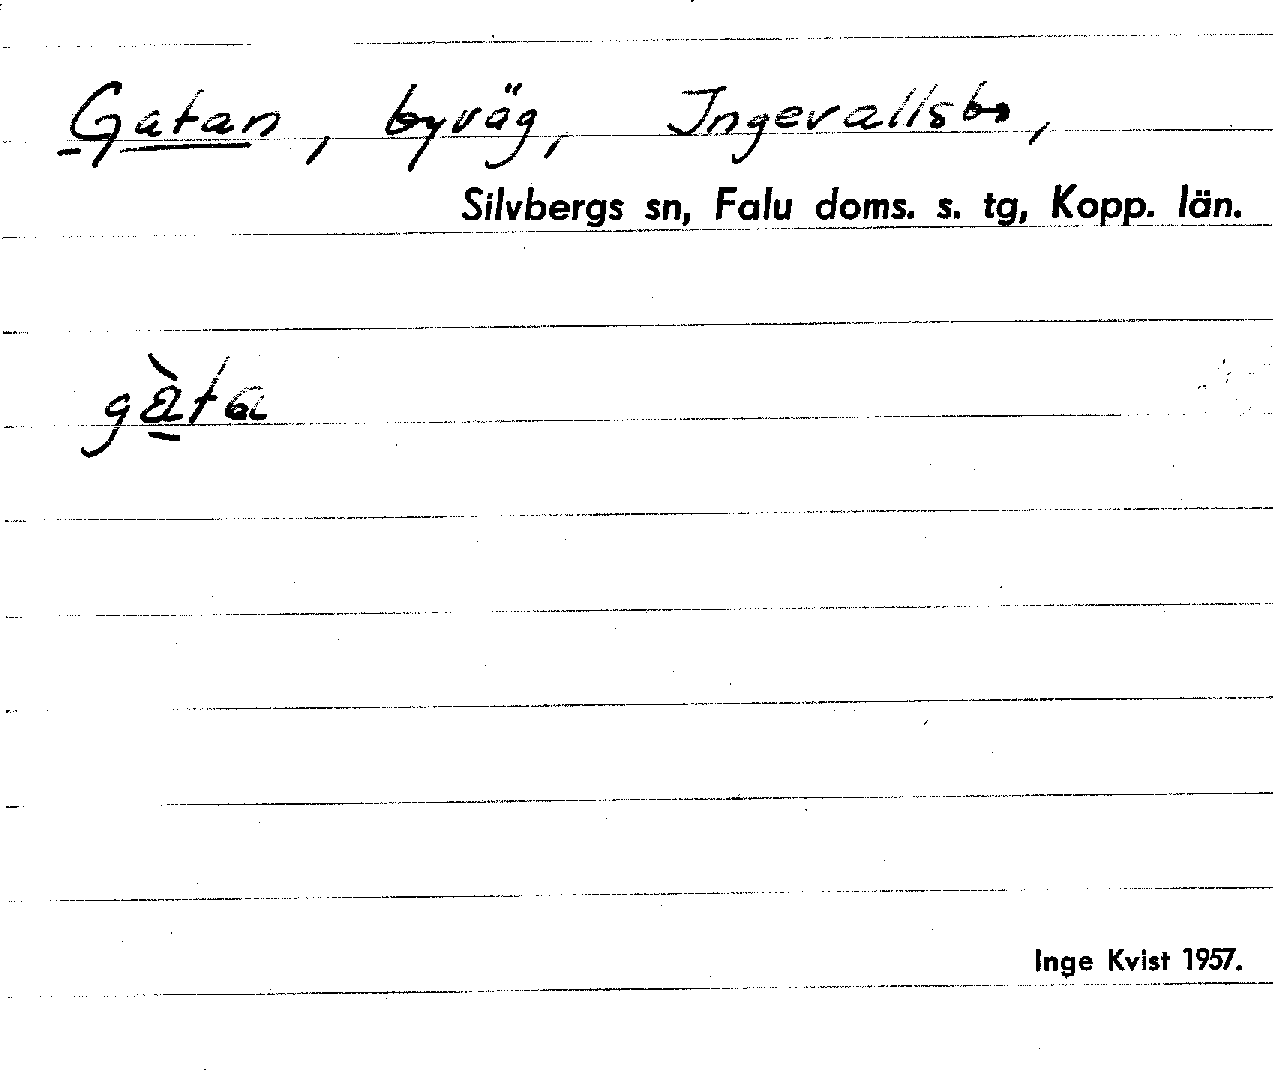 Gatan, byväg, Ingevallsbo,
Silvbergs sn, Falu doms. s. tg, Kopp. län.
gà̱ta
Inge Kvist 1957.